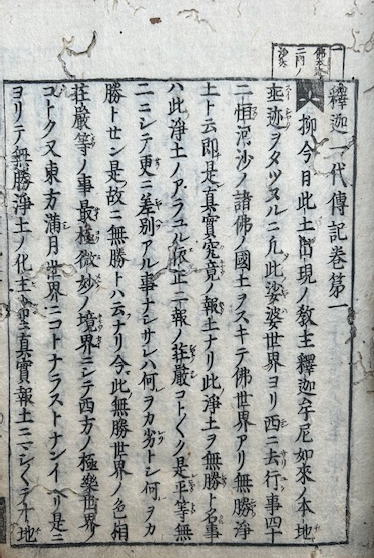 釋迦一代傳記卷第一
抑今日此土出現ノ教主釋迦牟尼如來ノ本地
垂迹ヲタツヌルニ凡此娑婆世界ヨリ西ニ去行ヿ四十
二恒河沙ノ諸佛ノ國土ヲスキテ佛世界アリ無勝淨
土ト云即是真實究竟ノ報土ナリ此淨土ヲ無勝ト名事
ハ此淨土ノアラユル依正二報ノ莊嚴コト〱ク是平等無
二ニシテ更ニ差別アル事ナシサレハ何ヲカ劣トシ何ヲカ
勝トセン是故ニ無勝トハ云ナリ今此無勝世界ノ色相
莊嚴等ノ事最極微妙ノ境界ニシテ西方ノ極樂世界
コトク又東方滿月世界ニコトナラストナンイヘリ是ニ
ヨリテ無勝淨土ノ化主
真實報土ニマシ〱テ十地